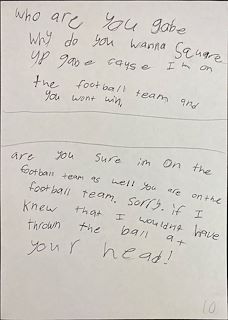 who are you gabe
why do you wanna square
up gabe cause I'm on
the football team and
you wont win
are you sure im on the
football team as well you are on the
football team. sorry. if I
knew that I wouldnt have
thrown the ball at
your head!
10